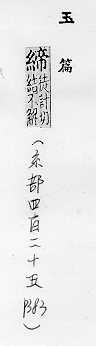 玉篇
締 徒計切 結不解
(糸部四百二十五 P383)